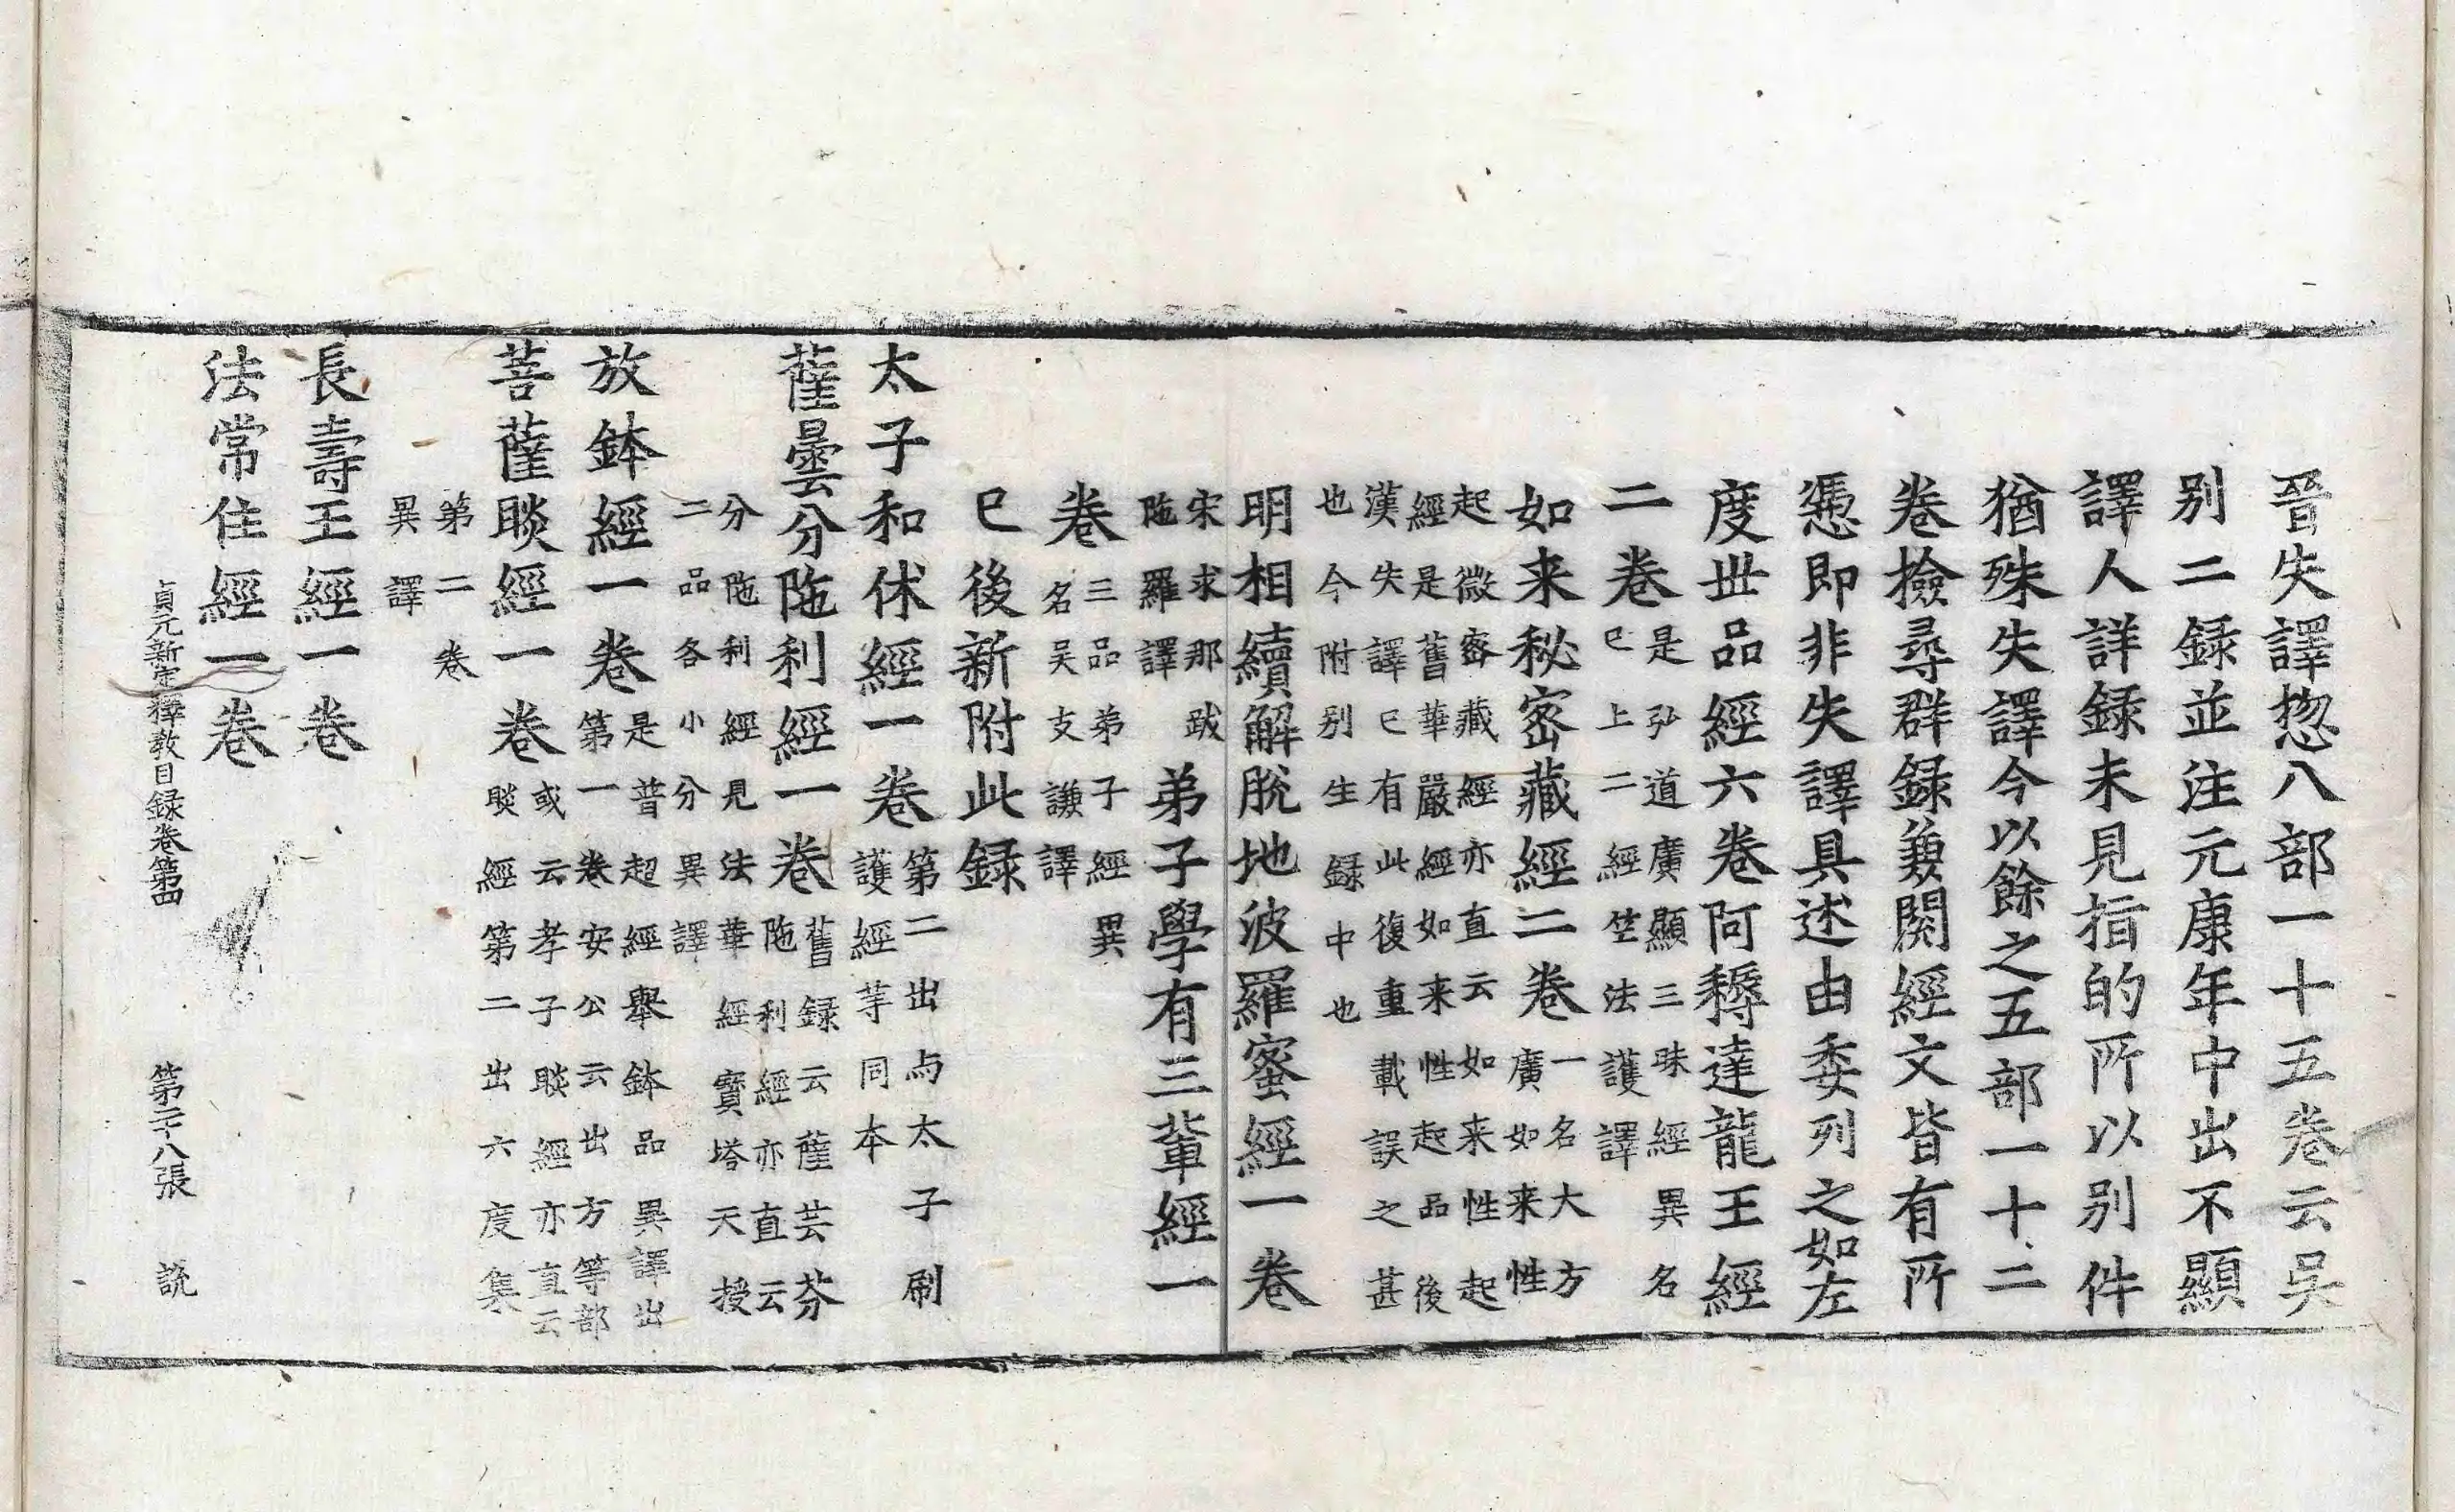 晉失譯揔八部一十五卷云吳
別二録並注元康年中出不顯
譯人詳録未見指的所以別件
猶殊失譯今以餘之五部一十二
卷撿尋群録兼閱經文皆有所
憑即非失譯具述由委列之如左
度世品經六卷阿耨達龍王經
二卷是弘道廣顯三昧經異名
巳上二經竺法護譯
如来秘密藏經二卷一名大方
廣如来性
起微密藏經亦直云如来性起
經是舊華嚴經如来性起品後
漢失譯巳有此復重載誤之甚
也今附別生録中也
明相續解脫地波羅蜜經一卷
宋求那跋
陁羅譯
弟子學有三輩經一
卷三品弟子經異
名吴支謙譯
巳後新附此録
太子和休經一卷第二出与太子刷
護經等同本
薩曇分陁利經一卷舊録云薩芸芬
陁利經亦直云
分陁利經見法華經寶塔天授
二品各小分異譯
放鉢經一卷是普超經舉鉢品異譯出
第一卷安公云出方等部
菩薩睒經一卷或云孝子睒經亦直云
睒經第二出六度集
第二卷
異譯
長壽王經一卷
法常住經一卷
貞元新定釋教目録卷第四 第二十八張 説